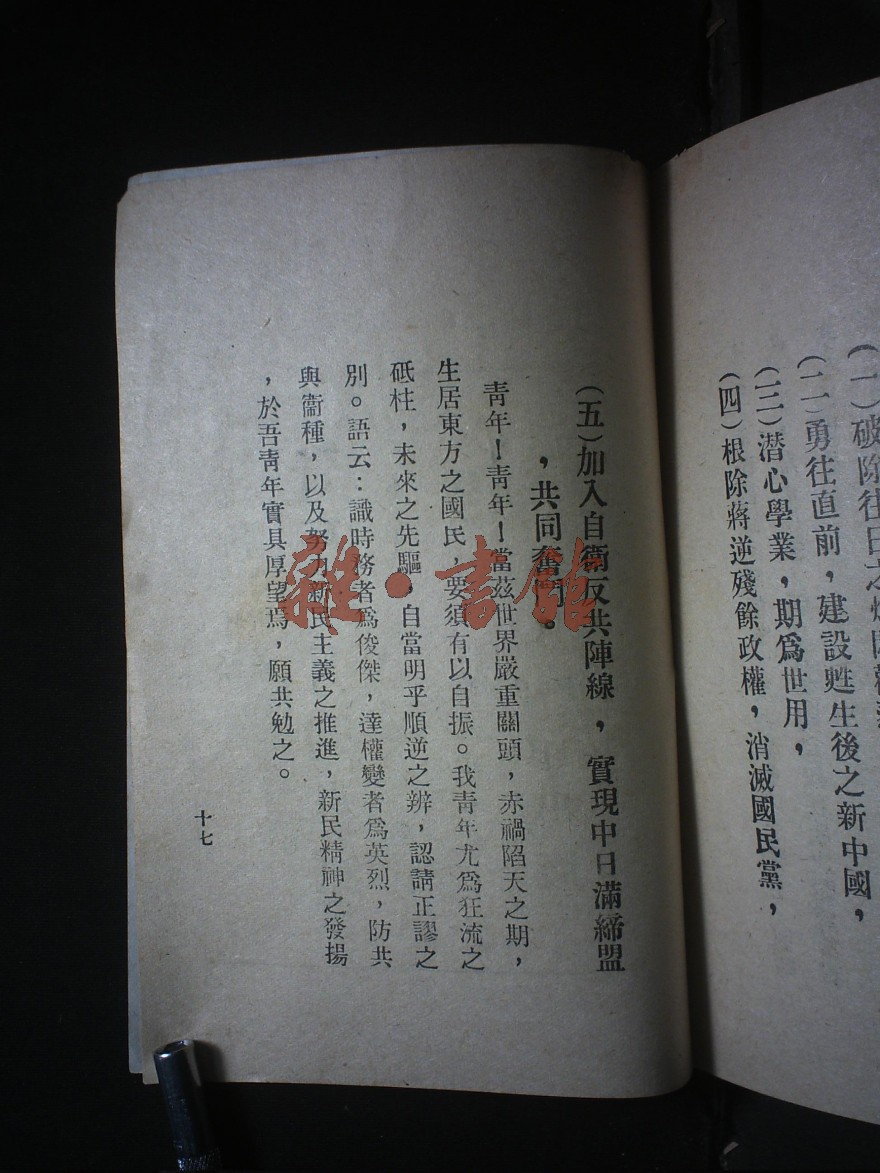 (一)破除往日之
(二)勇往直前，建設甦生後之新中國，
(三)潛心學業，期爲世用，
(四)根除蔣逆殘餘政權，消滅國民黨，
(五)加入自衞反共陣線，實現中日滿締盟
，共同奮鬥。
靑年！靑年！當茲世界嚴重關頭，赤禍陷天之期，
生居東方之國民，要須有以自振。我靑年尤爲狂流之
砥柱，未來之先驅，自當明乎順逆之辨，認請正謬之
別。語云：識時務者爲俊傑，達權變者爲英烈，防共
與衞種，以及努力新民主義之推進，新民精神之發揚
，於吾靑年實具厚望焉，願共勉之。
十七
雜·書館